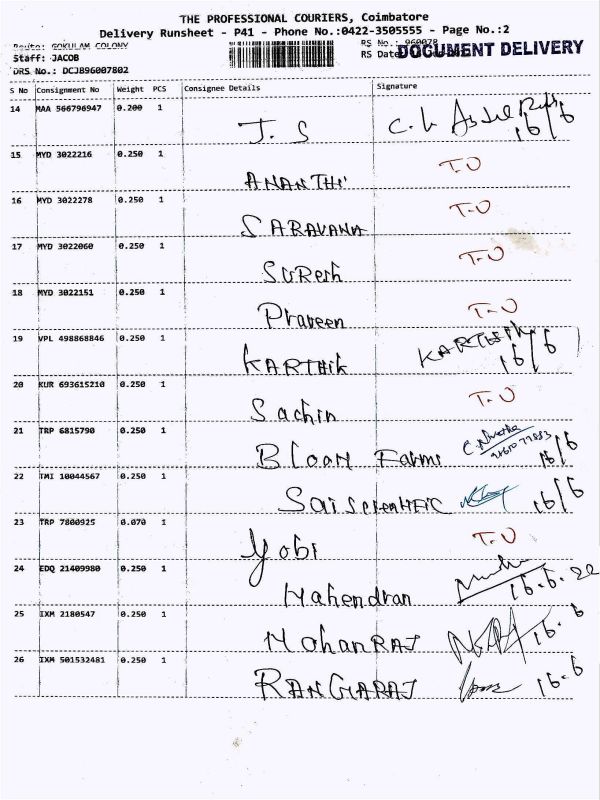 THE PROFESSIONAL COURIERS, Coimbatore
Delivery Runsheet - P41 - Phone No.:0422-3505555 - Page No.:2
Route: GOKULAM COLONY RS No.: 960078
Staff: JACOB RS Date DOCUMENT DELIVERY
DRS No.: DCJ896007802
S No Consignment No Weight PCS Consignee Details Signature
14 MAA 566796947 0.200 1 J. S 16/6
15 MYD 3022216 0.250 1 ANANTHI T.O
16 MYD 3022278 0.250 1 SARAVANA T.O
17 MYD 3022060 0.250 1 SUResh T.O
18 MYD 3022151 0.250 1 Praveen T.O
19 VPL 498868846 0.250 1 KARTHIK KARTHIK 16/6
20 KUR 693615210 0.250 1 Sachin T.O
21 TRP 6815790 0.250 1 Bloom Farms 16/6
22 TMI 10044567 0.250 1 Sai Scientific 16/6
23 TRP 7800925 0.070 1 Yobi T.O
24 EDQ 21409980 0.250 1 Mahendran 16.6.22
25 IXM 2180547 0.250 1 MohanRAJ 16.6
26 IXM 501532481 0.250 1 RANGARAJ 16.6